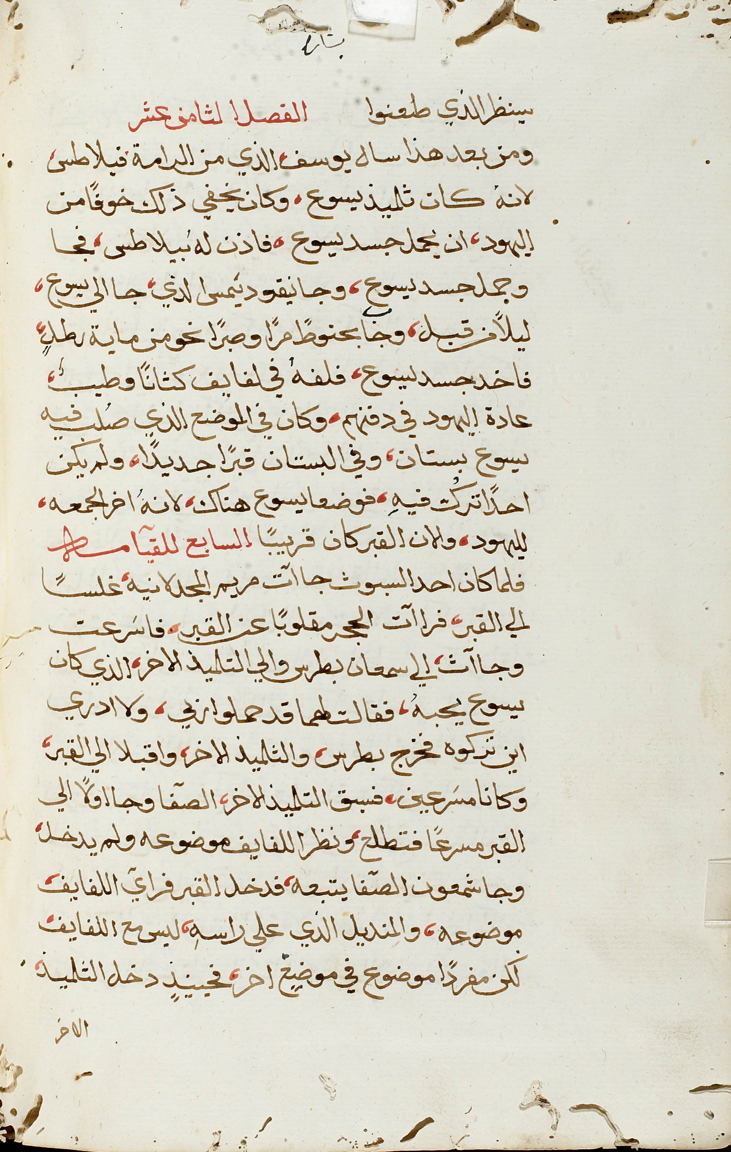 بشاره
سينظر الذي طعنوا الفصل الثامن عشر
ومن بعد هذا ساله يوسف الذي من الرامة فيلاطس
لانهُ كان تلميذ يسوع وكان يخفي ذلك خوفًا من
اليهود ان يحمل جسد يسوع فاذن لهُ بيلاطس فجا
وحمل جسد يسوع وجا نيقوديمس الذي جا الي يسوع
ليلاً من قبل وجا بحنوطًا مرًا وصبرًا نحو من ماية رطلٍ
فاخد جسد يسوع فلفهُ في لفايف كتانًا وطيب
عادة اليهود في دفنهم وكان في الموضع الذي صُلب فيه
يسوع بستان وفي البستان قبرًا جديدًا ولم يكن
احدًا ترك فيهِ فوضعا يسوع هناك لانهُ اخر الجمعه
لليهود ولان القبر كان قريبًا السابع للقيامه
فلما كان احد السبوت جاات مريم المجدلانيه غلسًا
الي القبر فراات الحجر مقلوبًا عن القبر فاسَرعت
وجاات الي سمعان بطرس والي التلميذ الاخر الذي كان
يسوع يحبهُ فقالت لهما قد حملوا ربي ولا ادري
اين تركوه فخرج بطرس والتلميذ الاخر واقبلا الي القبر
وكانا مسَرعين فسبق التلميذ الاخر الصفا وجا اولاً الي
القبر مسرعًا فتطلع ونظر اللفايف موضوعه ولم يدخل
وجا شمعون الصفا يتبعه فدخل القبر فراي اللفايف
موضوعه والمنديل الذي علي راسهِ ليس مع اللفايف
لكن مفردًا موضوع في موضعٍ اخر فحينيذٍ دخل التلميذ
الاخر